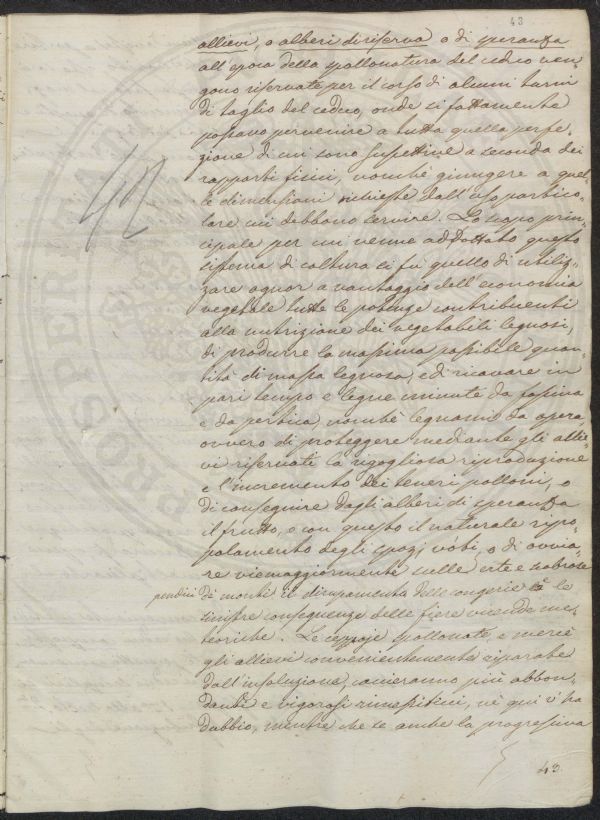 43
allievi, o alberi di riserva o di speranza
all'epoca della spollonatura del ceduo ven,
gono riservate per il corso di alcuni turni
di taglio del ceduo, onde sì fattamente
possano pervenire a tutta quella perfe,
zione di cui sono suscettive a seconda dei
rapporti fisici, nonchè giungere a quel,
le dimensioni richieste dall'uso partico,
lare cui debbono servire. Lo scopo prin,
cipale per cui venne addottato questo
sistema di coltura si fù quello di utiliz,
zare ognor a vantaggio dell'economia
vegetale tutte le potenze contribuenti
alla nutrizione dei vegetabili legnosi,
di produrre la massima possibile quan,
tità di massa legnosa, e di ricavare in
pari tempo e legne minute da fascina
e da pertica, nonchè legname da opera,
ovvero di proteggere mediante gli allie,
vi riservati la rigogliosa riproduzione
e l'incremento dei teneri polloni, o
di conseguire dagli alberi di speranza
il frutto, o con questo il naturale ripo,
polamento degli spazj vôti, o di ovvia,
re viemaggiormente sulle erte e
pendici de' monti il dirupamento delle congerie e le
sinistre conseguenze delle fiere vicende me,
teoriche. Le ceppaje spollonate, e mercè
gli allievi convenientemente riparate
dall'insoluzione, cacieranno più abbon,
danti e vigorosi rimessiticci, nè qui v'ha
dubbio, mentre che se anche la progressiva
43.
42
PROSPERITATI